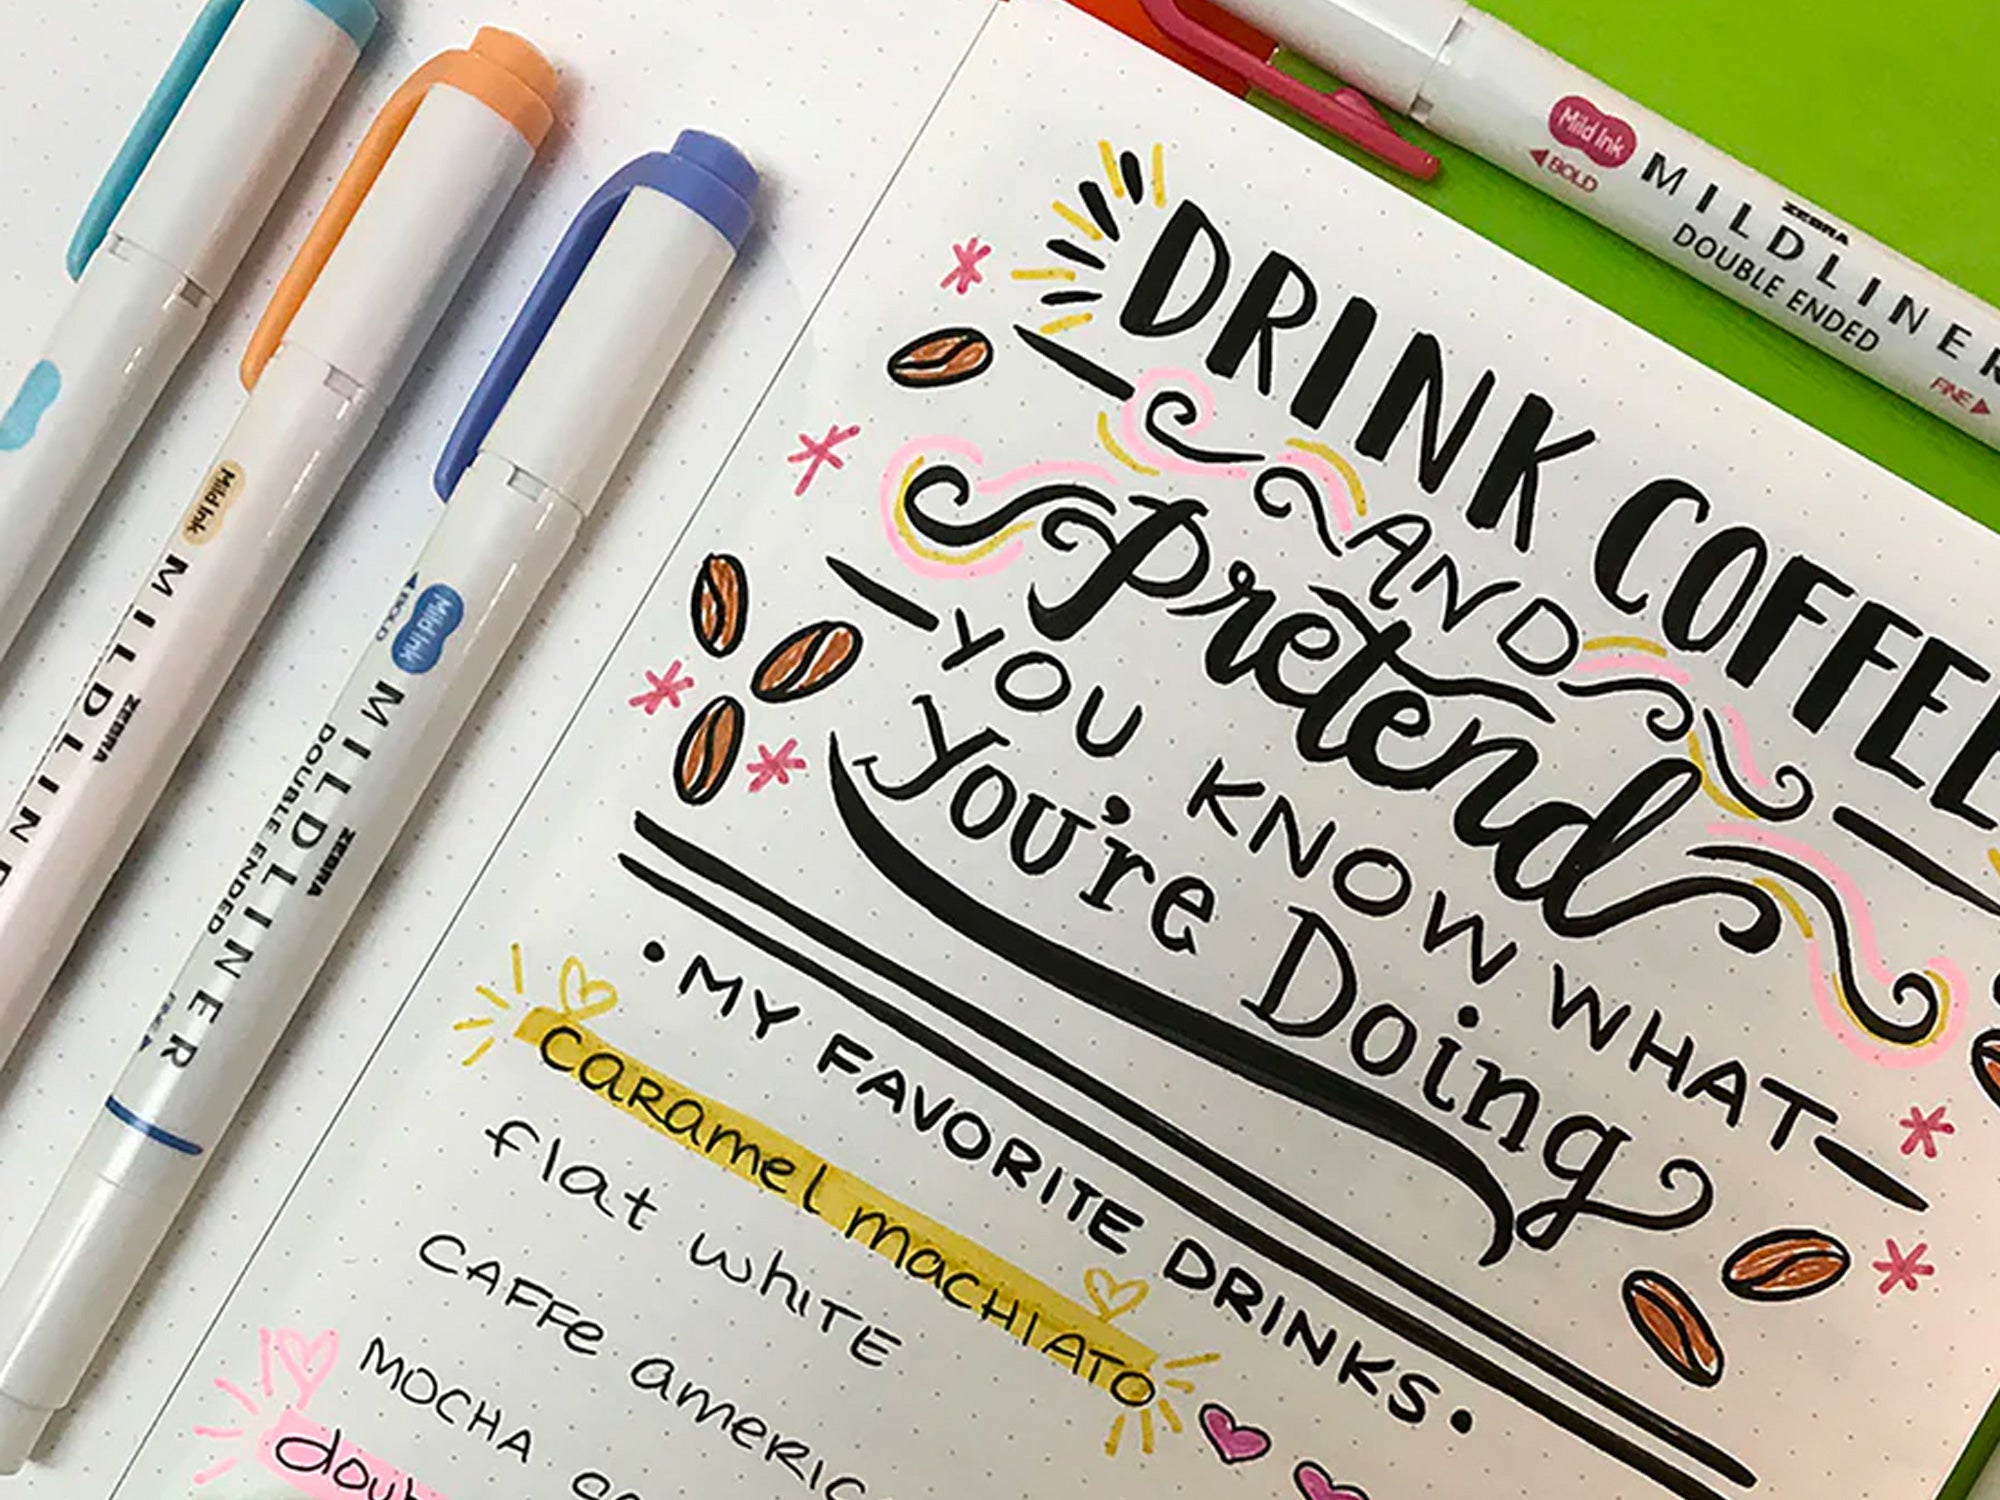 DRINK COFFEE
AND
Pretend
YOU KNOW WHAT
you're Doing
• MY FAVORITE DRINKS •
caramel machiato
flat white
CAFFE americ
MOCHA
dou
Mild Ink
BOLD
MILDLINER
ZEBRA
DOUBLE ENDED
FINE
Mild Ink
BOLD
MILDLINER
ZEBRA
DOUBLE ENDED
FINE
Mild Ink
MILDLINE
ZEBRA